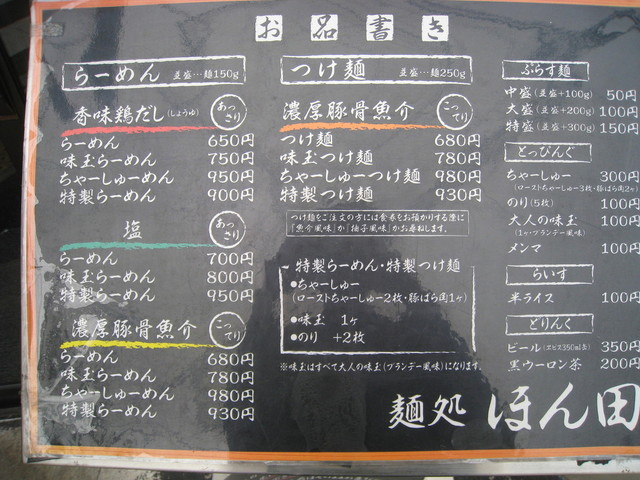 お品書き
らーめん 並盛…麺150g
香味鶏だし(しょうゆ) あっさり
らーめん 650円
味玉らーめん 750円
ちゃーしゅーめん 950円
特製らーめん 900円
塩 あっさり
らーめん 700円
味玉らーめん 800円
特製らーめん 950円
濃厚豚骨魚介 こってり
らーめん 680円
味玉らーめん 780円
ちゃーしゅーめん 980円
特製らーめん 930円
つけ麺 並盛…麺250g
濃厚豚骨魚介 こってり
つけ麺 680円
味玉つけ麺 780円
ちゃーしゅーつけ麺 980円
特製つけ麺 930円
つけ麺をご注文の方には食券をお預かりする際に
「魚介風味」か「柚子風味」かお尋ねします。
特製らーめん・特製つけ麺
●ちゃーしゅー
(ローストちゃーしゅー2枚・豚ばら肉1ヶ)
●味玉 1ヶ
●のり +2枚
※味玉はすべて大人の味玉(ブランデー風味)になります。
ぷらす麺
中盛(並盛+100g) 50円
大盛(並盛+200g) 100円
特盛(並盛+300g) 150円
とっぴんぐ
ちゃーしゅー 300円
(ローストちゃーしゅー3枚・豚ばら肉2ヶ)
のり(5枚) 100円
大人の味玉 100円
(1ヶ・ブランデー風味)
メンマ 100円
らいす
半ライス 100円
どりんく
ビール(ヱビス350ml缶) 350円
黒ウーロン茶 200円
麺処 ほん田